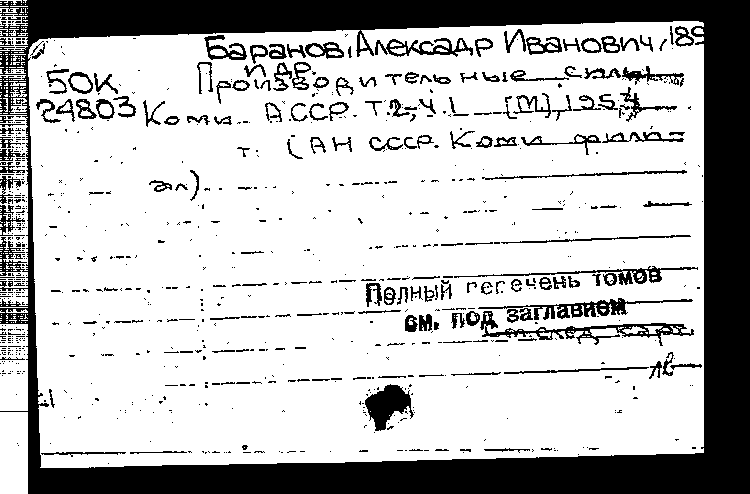 Баранов, Алексадр Иванович, 189
и др.
50К Производительные силы
24803 Коми АССР. Т.2, ч.1 [М], 195
т. (АН СССР. Коми фили-
ал).
Полный перечень томов
см. под заглавием
См. след. карт.